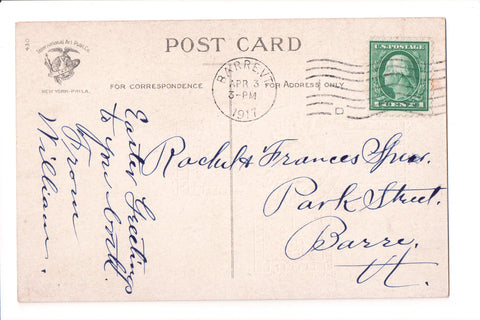 International Art Publ. Co.
NEW YORK-PHILA.
POST CARD
FOR CORRESPONDENCE
FOR ADDRESS ONLY
BARRE, VT.
APR 3
3-PM
1917
U.S. POSTAGE
1 CENT 1
Easter Greetings
to you both.
From
William.
Rachel & Frances
Park Street.
Barre,
Vt.